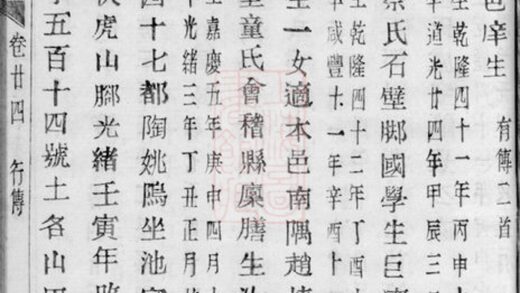 邑庠生 有傳二首
生乾隆四十一年丙申十
卒道光廿四年甲辰三
蔡氏石壁腳國學生巨
生乾隆四十二年丁酉
卒咸豐十一年辛酉十
生一女適本邑南隅趙
童氏會稽縣廩膳生
生嘉慶五年庚申四月
卒光緒三年丁丑正月
四十七都陶姚隖坐池
伏虎山腳光緒壬寅年
字五百十四號土名山
卷廿四 行傳